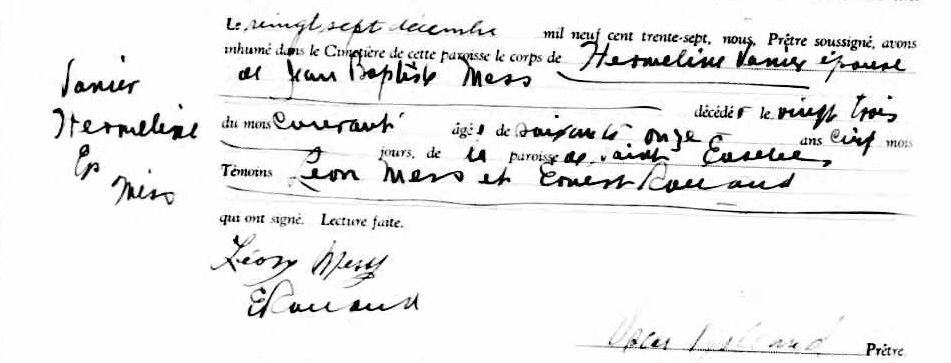 Le vingt sept décembre mil neuf cent trente-sept, nous, Prêtre soussigné, avons
inhumé dans le Cimetière de cette paroisse le corps de Hermeline Vanier épouse
de Jean Baptiste Mess
décédée le vingt trois
du mois Courant âgée de soixante onze ans cinq mois
jours, de la paroisse de Saint Eusèbe,
Témoins Léon Mess et Ernest Rouaud
qui ont signé. Lecture faite.
Léon Mess
E Rouaud
Prêtre
Vanier
Hermeline
Ep
Mess